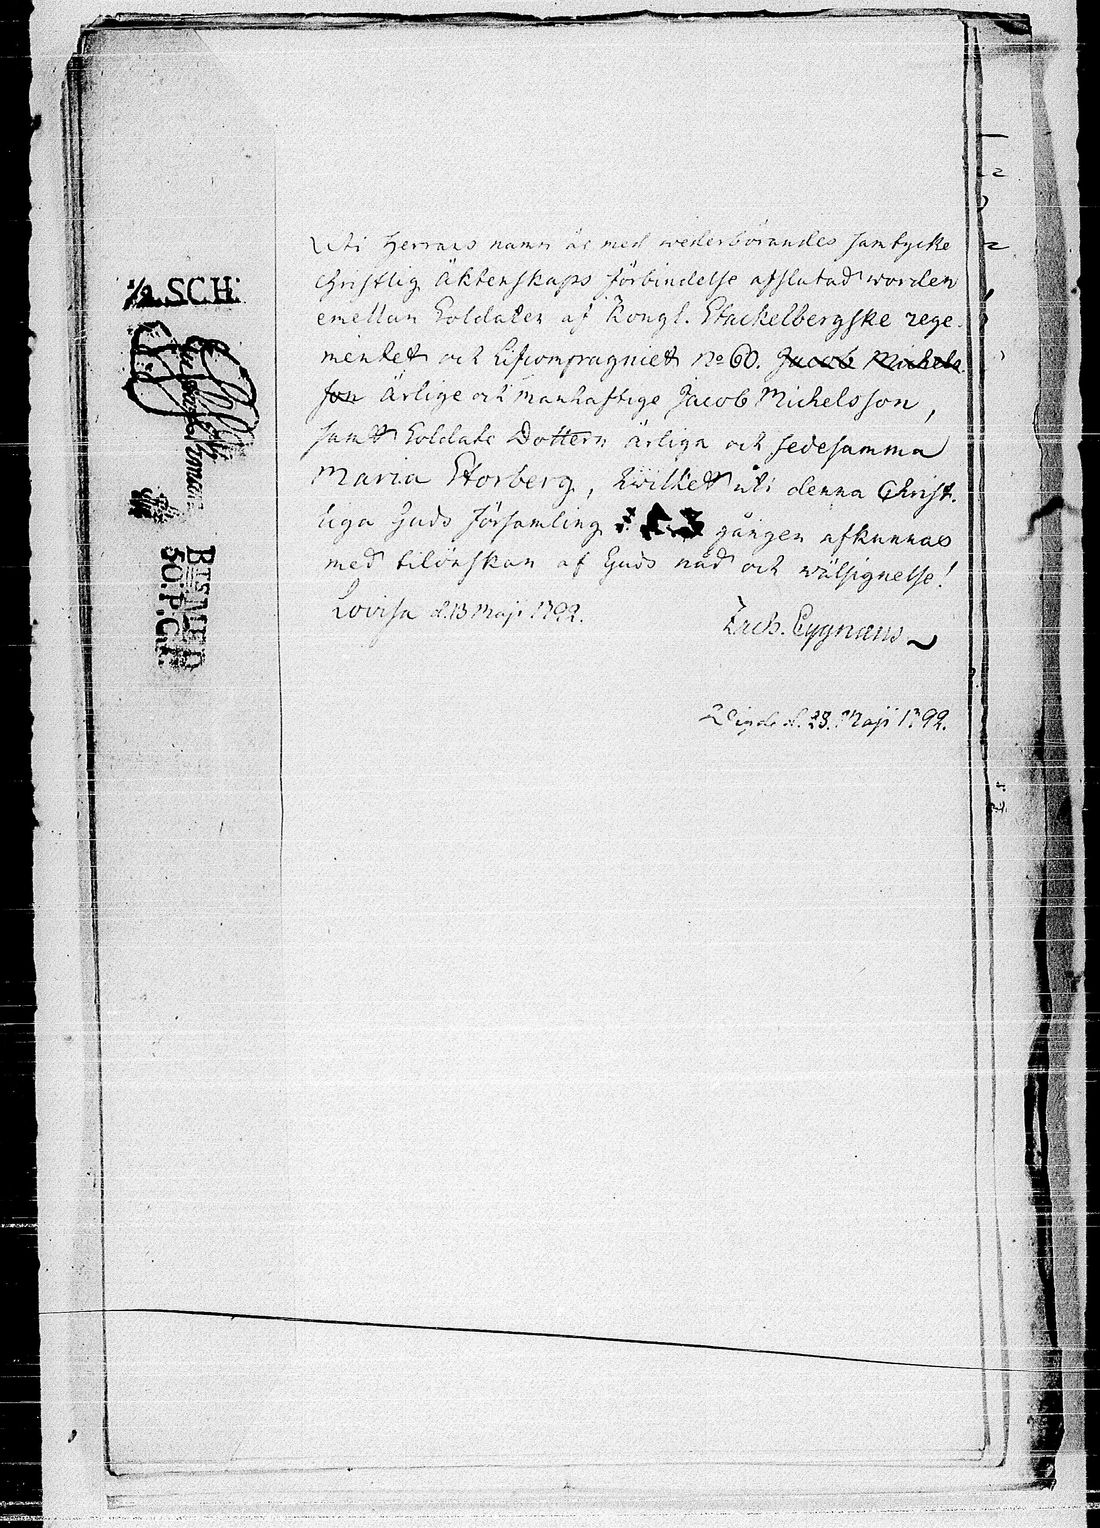 ½ SCH:
BTSMED
50.P.C:t
Uti Herrans namn är med wederbörandes samtycke
Christlig Äktenskaps förbindelse afslutad worden
emellan Soldaten af Kongl. Stackelbergske rege-
mentet och Lifcompagniet No 60. Jacob Michels
son ärlige och manhaftige Jacob Michelsson,
samt Soldate Dottern ärliga och sedesamma
Maria Storberg, hwilket uti denna Christ-
liga Guds församling gången afkunnas
med tilönskan af Guds nåd och wälsignelse!
Lovisa d. 13 Maji 1792.
Zach. Cygnæus
Wigde d. 28. Maji 1792.